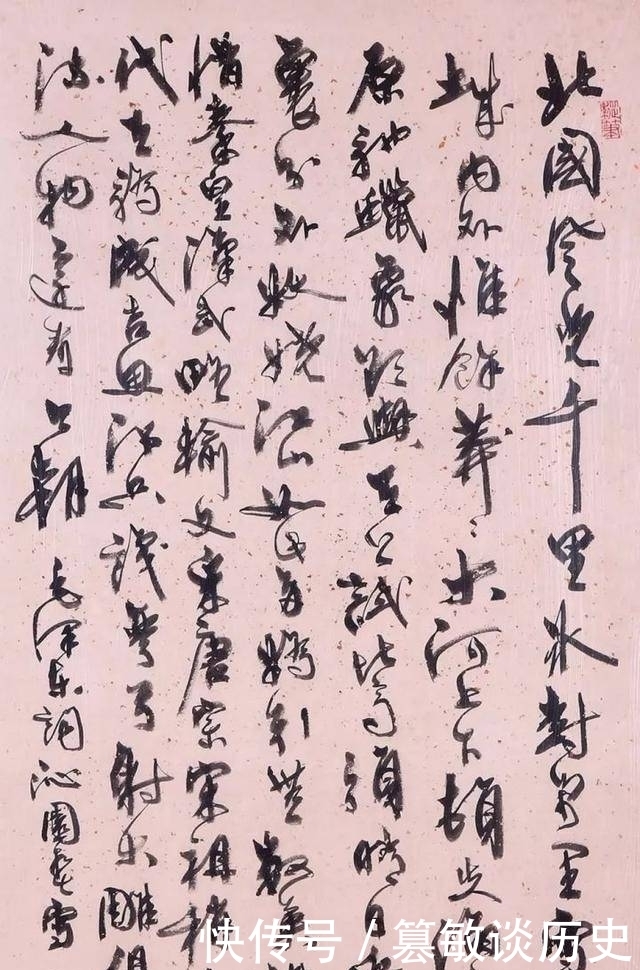 北國風光千里冰封万里雪
城内外惟餘莽〻大河上下頓失滔
原馳蠟象欲與天公試比高須晴日
裹分外妖嬈江山如此多嬌引無數英
惜秦皇漢武略輸文采唐宗宋祖稍
代天驕成吉思汗只識彎弓射大雕俱
流人物還看今朝 毛澤东詞沁園春雪
快传号 / 篡敏谈历史